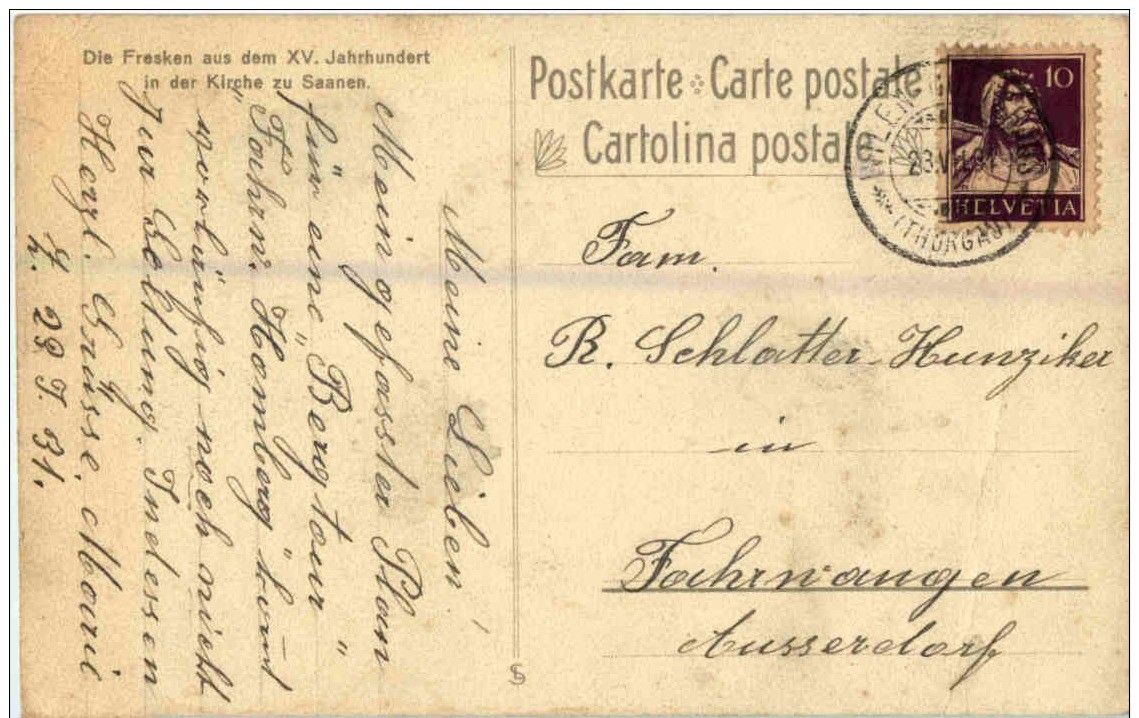 Die Fresken aus dem XV. Jahrhundert
in der Kirche zu Saanen.
Meine Lieben!
Mein gefasster Plan
für eine „Bergtour"
"Fahrw. Homberg" kommt
vorläufig noch nicht
zur Geltung. Indessen
Herzl. Grüsse, Marie
29. 31.
Postkarte Carte postale
Cartolina postale
10
HELVETIA
(THURGAU)
Fam.
R. Schlatter-Hunziker
in
Fahrwangen
Ausserdorf